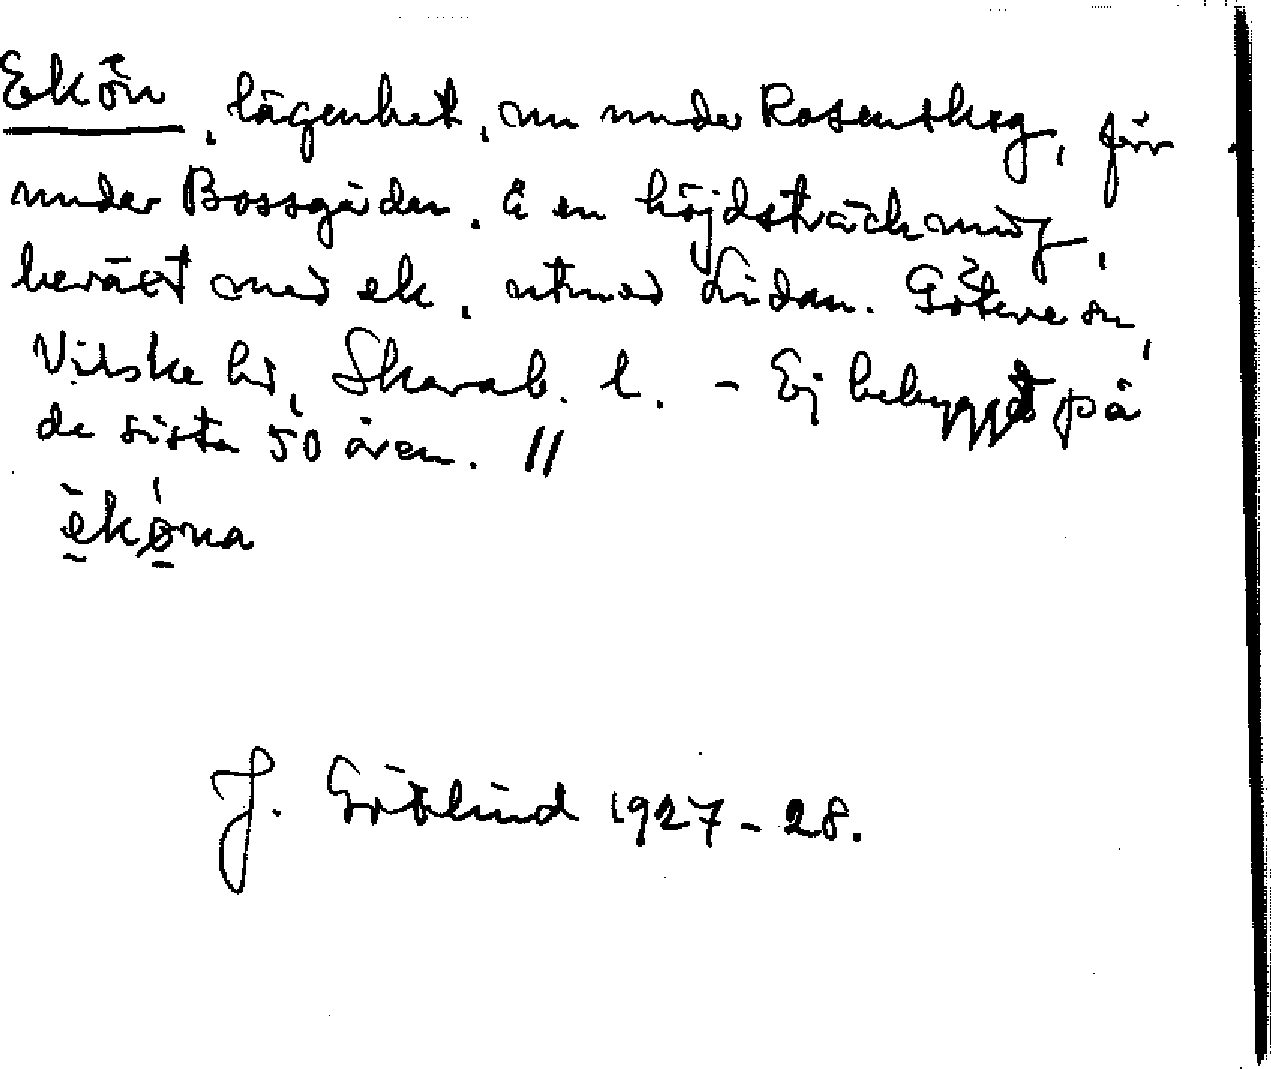 Ekön, lägenhet, nu under Rosenskog, förr
under Bossgården. Å en höjdsträckning,
beväxt med ek, utmed Lidan. Göteve sn,
Vilske hd, Skarab. l. - Ej bebyggt på
de sista 50 åren. //
èkø̀na
J. Götlind 1927-28.